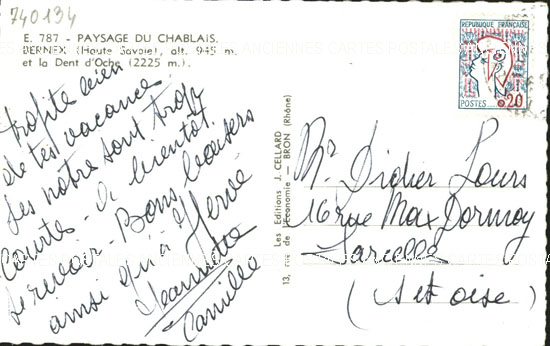 740134
E. 787 - PAYSAGE DU CHABLAIS.
BERNEX (Haute Savoie), alt. 945 m.
et la Dent d'Oche (2225 m.).
ANCIENNES CARTES POSTALES
profite bien
de tes vacances
les notre sont trop
courte - A bientôt.
se revoir - Bons baisers
ainsi qu'à Hervé
Jeannette
Camille
Les Editions J. CELLARD
13, rue de l'Economie - BRON (Rhône)
REPUBLIQUE FRANÇAISE
POSTES
0,20
Mr Didier Lours
16 rue Max Dormoy
Sarcelle
(S et oise)